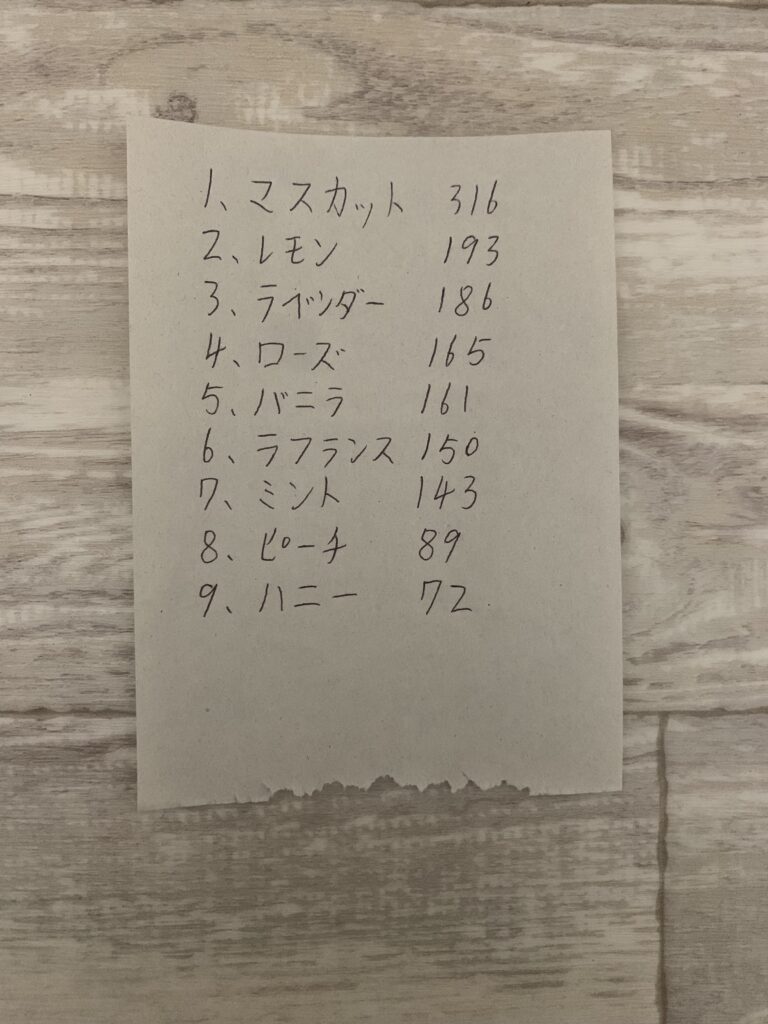 1、マスカット 316
2、レモン 193
3、ラベンダー 186
4、ローズ 165
5、バニラ 161
6、ラフランス 150
7、ミント 143
8、ピーチ 89
9、ハニー 72